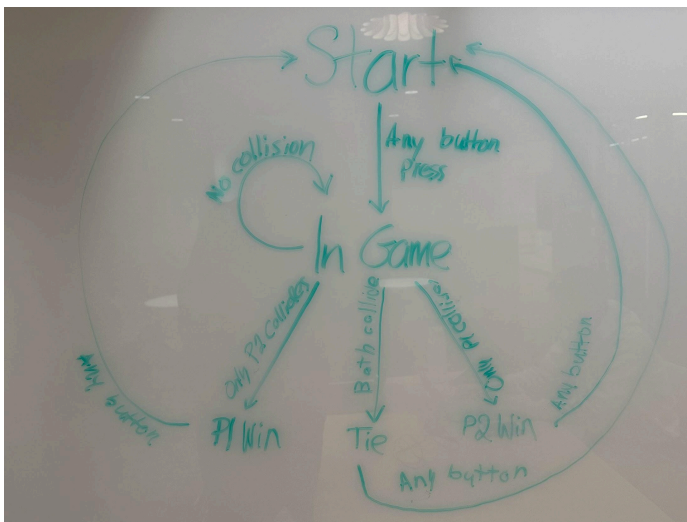 Start
Any button
Press
No collision
In Game
Only P2 Collides
Both collide
Only P1 collides
Any button
P1 Win
Tie
P2 Win
Any button
Any button